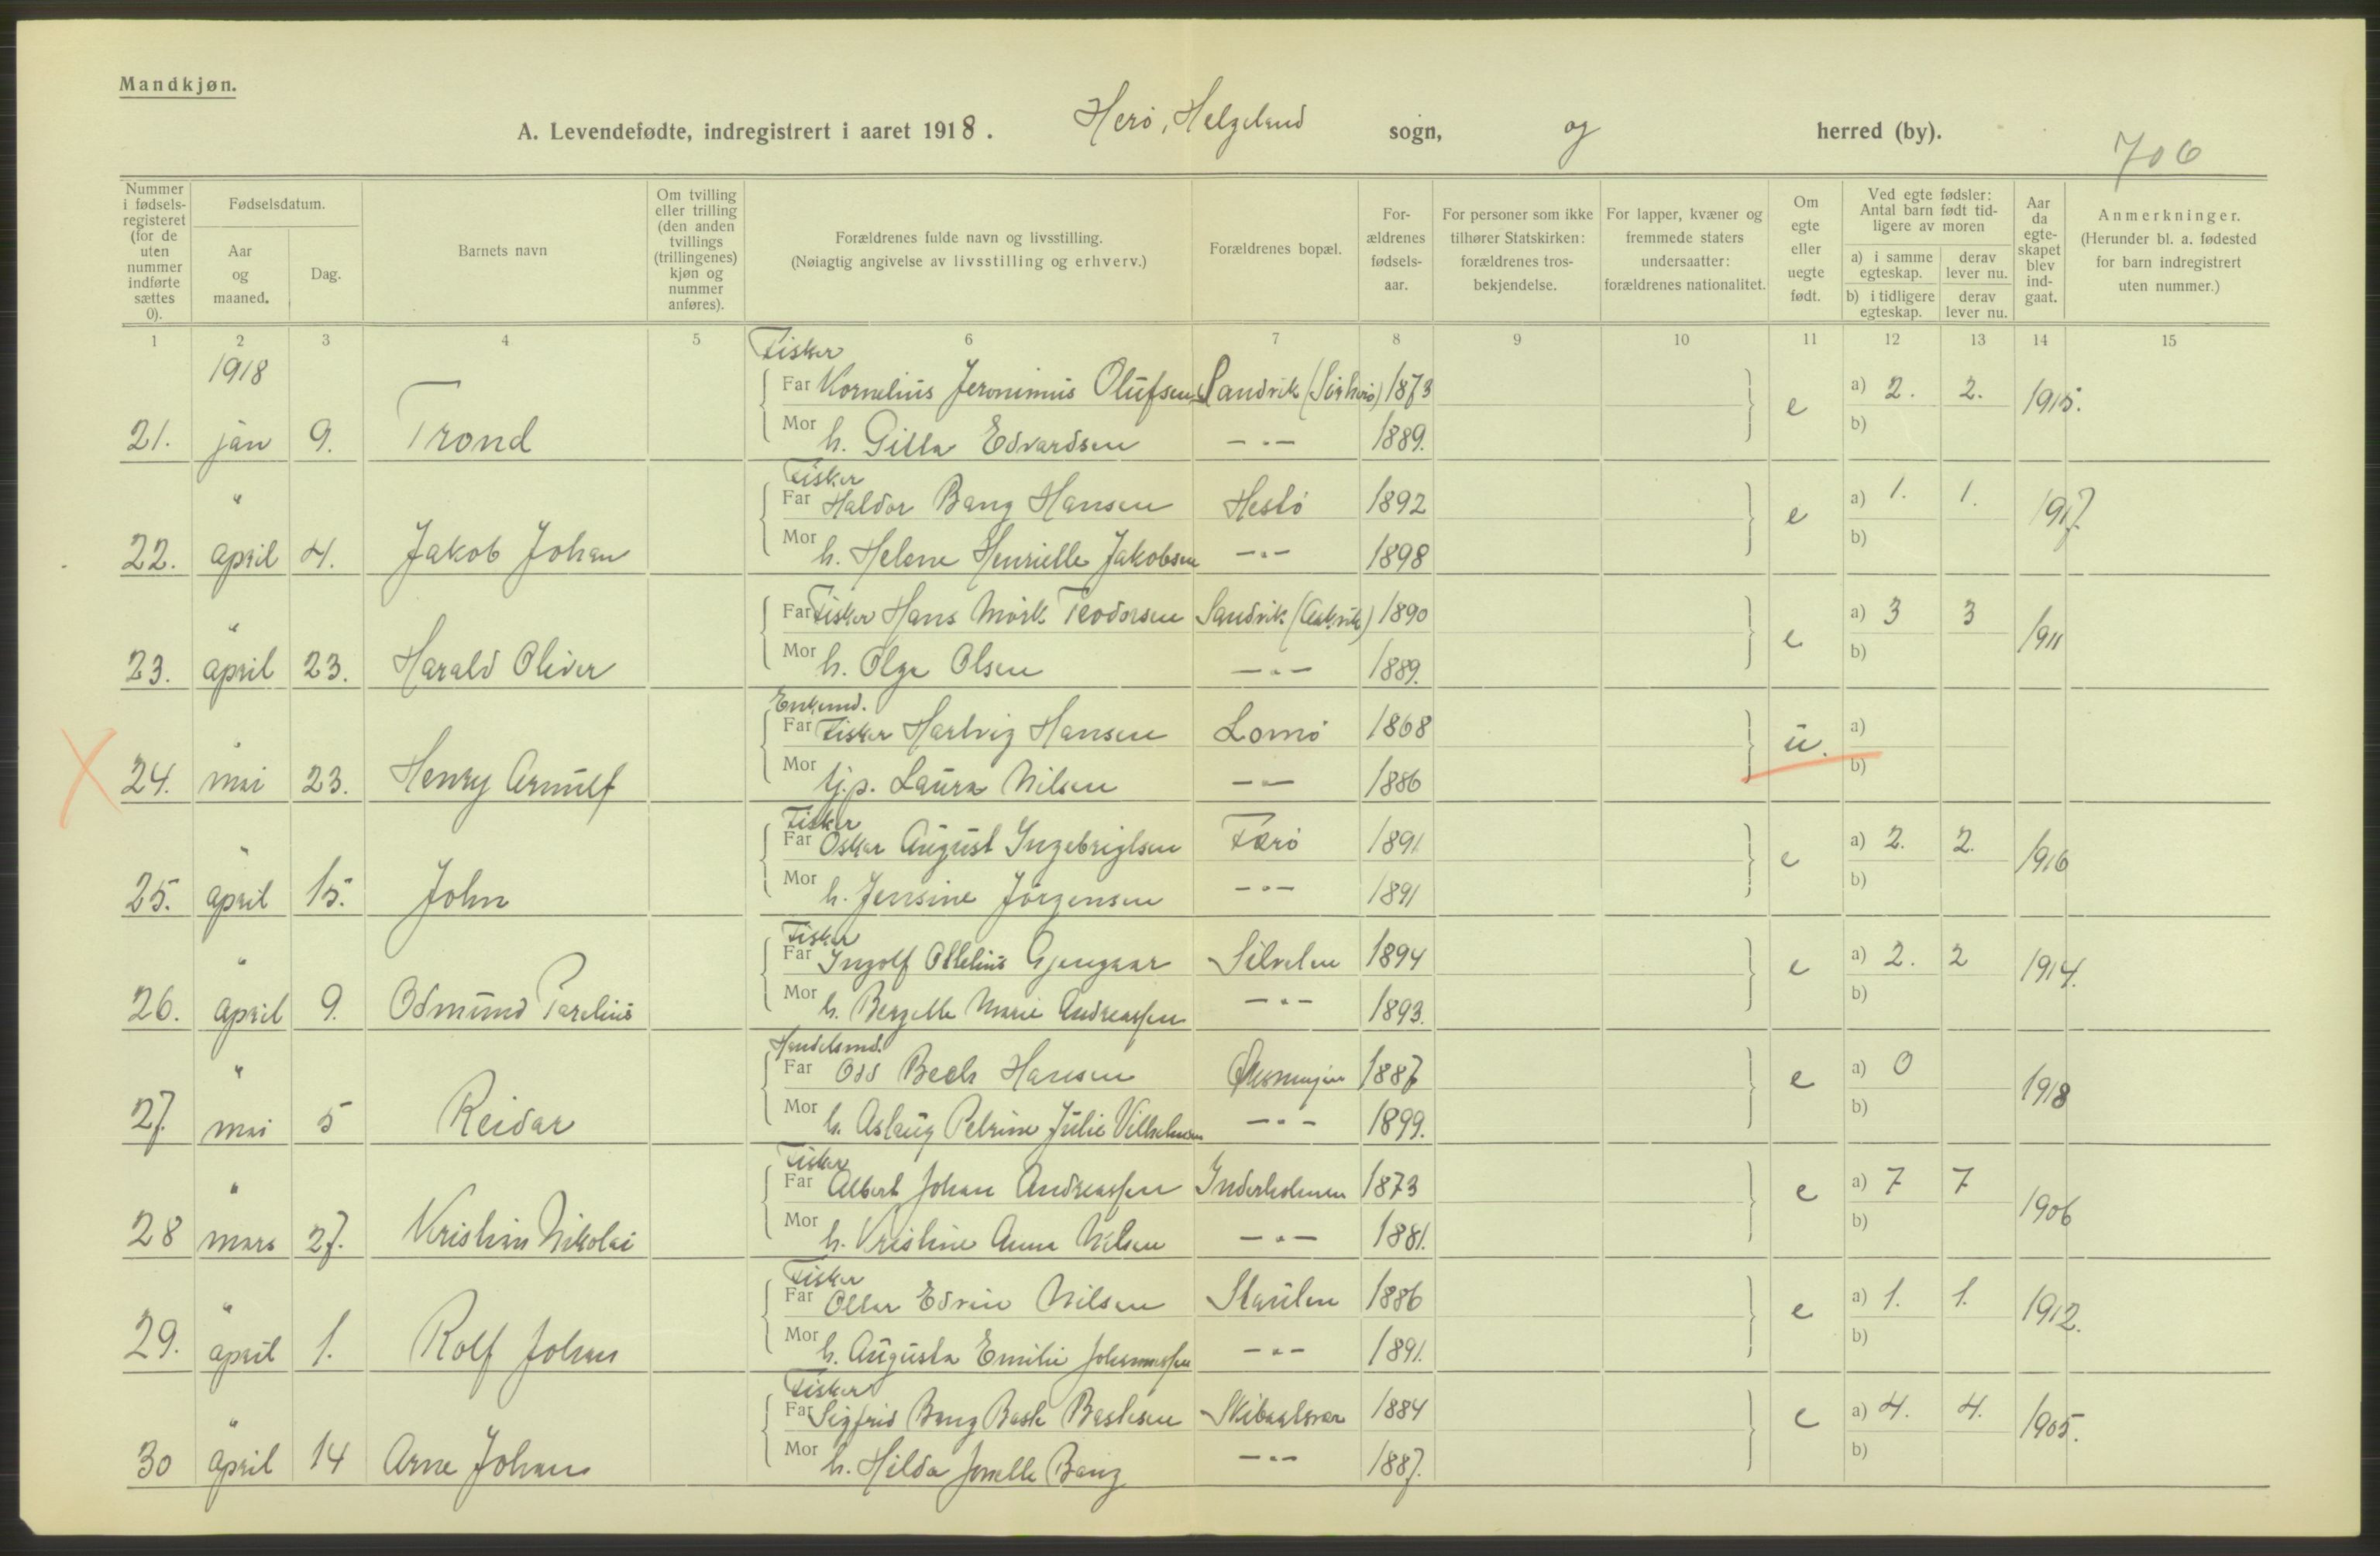 Mandkjøn.
A. Levendefødte, indregistrert i aaret 1918. Herø, Helgeland sogn, og herred (by).
706
Nummer i fødselsregisteret (for de uten nummer indførte sættes 0).
Fødselsdatum.
Aar og maaned.
Dag.
Barnets navn
Om tvilling eller trilling (den anden tvillings (trillingenes) kjøn og nummer anføres).
Forældrenes fulde navn og livsstilling.
(Nøiagtig angivelse av livsstilling og erhverv.)
Forældrenes bopæl.
Forældrenes fødselsaar.
For personer som ikke tilhører Statskirken: forældrenes trosbekjendelse.
For lapper, kvæner og fremmede staters undersaatter: forældrenes nationalitet.
Om egte eller uegte født.
Ved egte fødsler: Antal barn født tidligere av moren
a) i samme egteskap.
derav lever nu.
b) i tidligere egteskap.
derav lever nu.
Aar da egteskapet blev indgaat.
Anmerkninger.
(Herunder bl. a. fødested for barn indregistrert uten nummer.)
1 2 3 4 5 6 7 8 9 10 11 12 13 14 15
1918
Fisker
Far Kornelius Jeronimus Olufsen Sandvik (Sørherø) 1873 e a) 2. 2. 1915.
21. jan 9. Trond Mor h. Gilla Edvardsen —"— 1889. b)
Fisker
" Far Haldor Bang Hansen Heslø 1892 e a) 1. 1. 1917.
22. april 4. Jakob Johan Mor h. Helene Henrielle Jakobsen —"— 1898 b)
" Far Fisker Hans Mørk Teodorsen Sandvik 1890 e a) 3 3 1911
23. april 23. Harald Oliver Mor h. Olga Olsen —"— 1889. b)
Enkemd.
" Far Fisker Hartvig Hansen Lomø 1868 u. a)
X 24. mai 23. Henry Arnulf Mor tj.p. Laura Nilsen —"— 1886 b)
Fisker
" Far Oskar August Ingebrigtsen Færø 1891 e a) 2. 2. 1916
25. april 15. John Mor h. Jensine Jørgensen —"— 1891 b)
Fisker
" Far Ingolf Ottelius Gjengaar Silvalen 1894 e a) 2. 2 1914.
26. april 9. Odmund Parelius Mor h. Bergette Marie Andreassen —"— 1893. b)
Handelsmd.
" Far Odd Bech Hansen 1887 e a) 0 1918
27. mai 5 Reidar Mor h. Aslaug Petrine Julie Vilhelmsen —"— 1899. b)
Fisker
" Far Albert Johan Andreassen Inderholmen 1873 e a) 7 7 1906
28 mars 27. Kristian Nikolai Mor h. Kristine Anna Nilsen —"— 1881. b)
Fisker
" Far Ottar Edvin Nilsen Staulen 1886 e a) 1. 1. 1912.
29. april 1. Rolf Johan Mor h. Augusta Emilie Johannessen —"— 1891. b)
Fisker
" Far Sigfrid Bang Bask Baskesen Skibaasvær 1884 e a) 4. 4. 1905.
30 april 14 Arne Johan Mor h. Hilda Jonelle Bang —"— 1887. b)